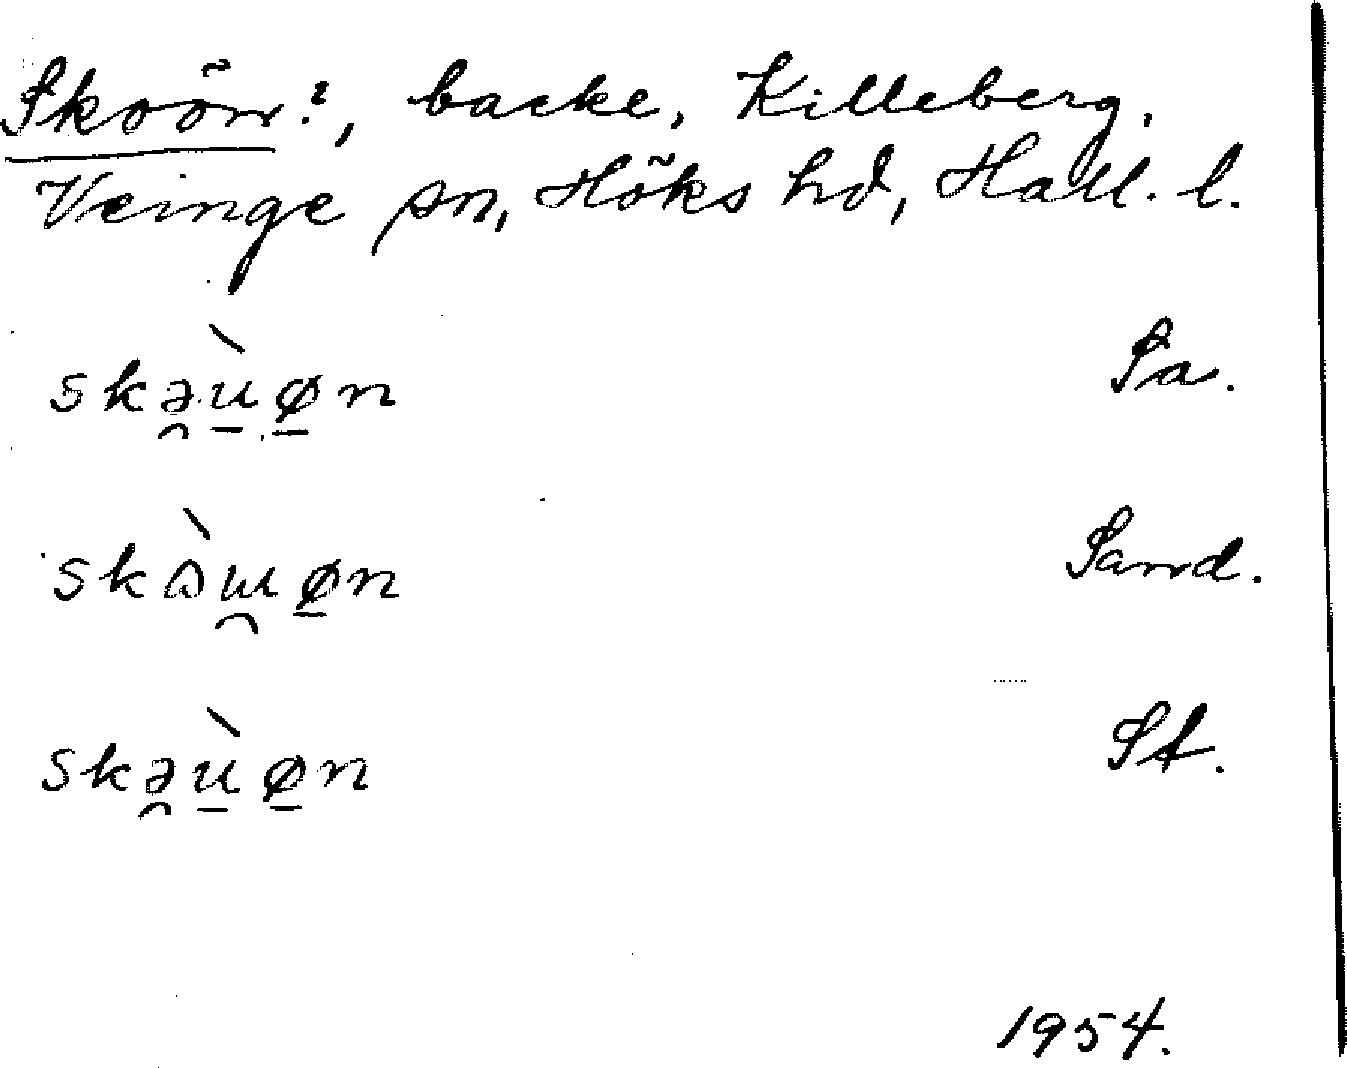 Skoön?, backe, Killeberg,
Veinge sn, Höks hd, Hall. l.
skə̯ù̱ø̱n Sa.
skɷ̀ɯ̯ø̱n Sand.
skə̯ù̱ø̱n St.
1954.